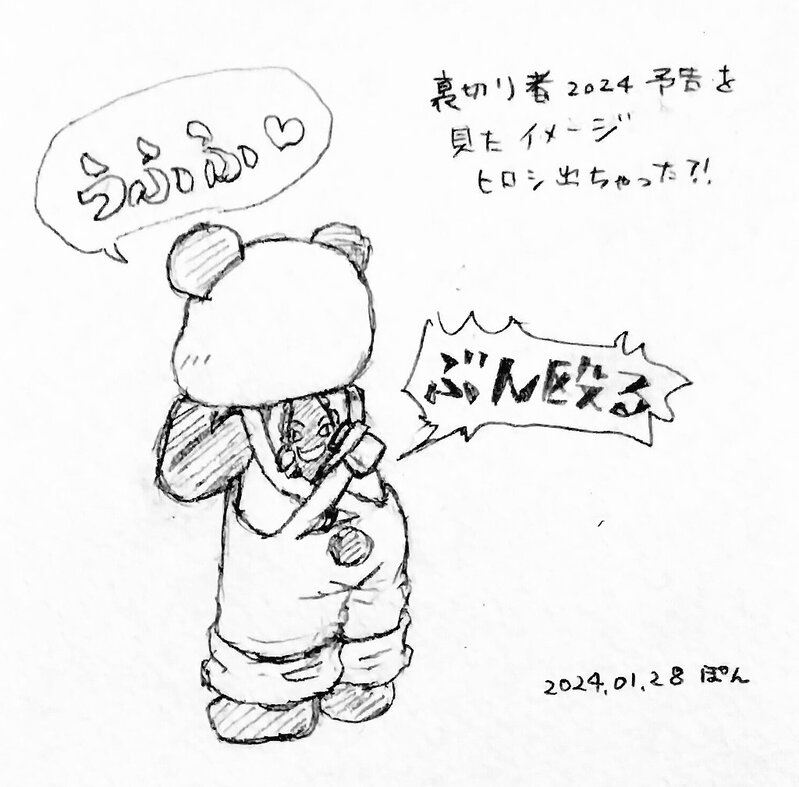 うふふふ♡
裏切り者2024予告を
見たイメージ
ヒロシ出ちゃった?!
ぶん殴る
2024.01.28 ぽん